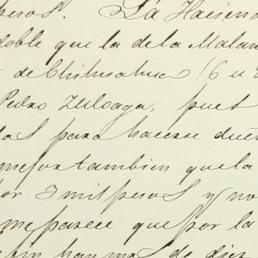 pesos". La Haciend
doble que la de la Malan
de Chihuahua (6 u 8
Pedro Zuloaga. pues
las para hacerse due
mejor tambien que la
or 3 mil pesos y no
me parece que por la
hay mas de diez